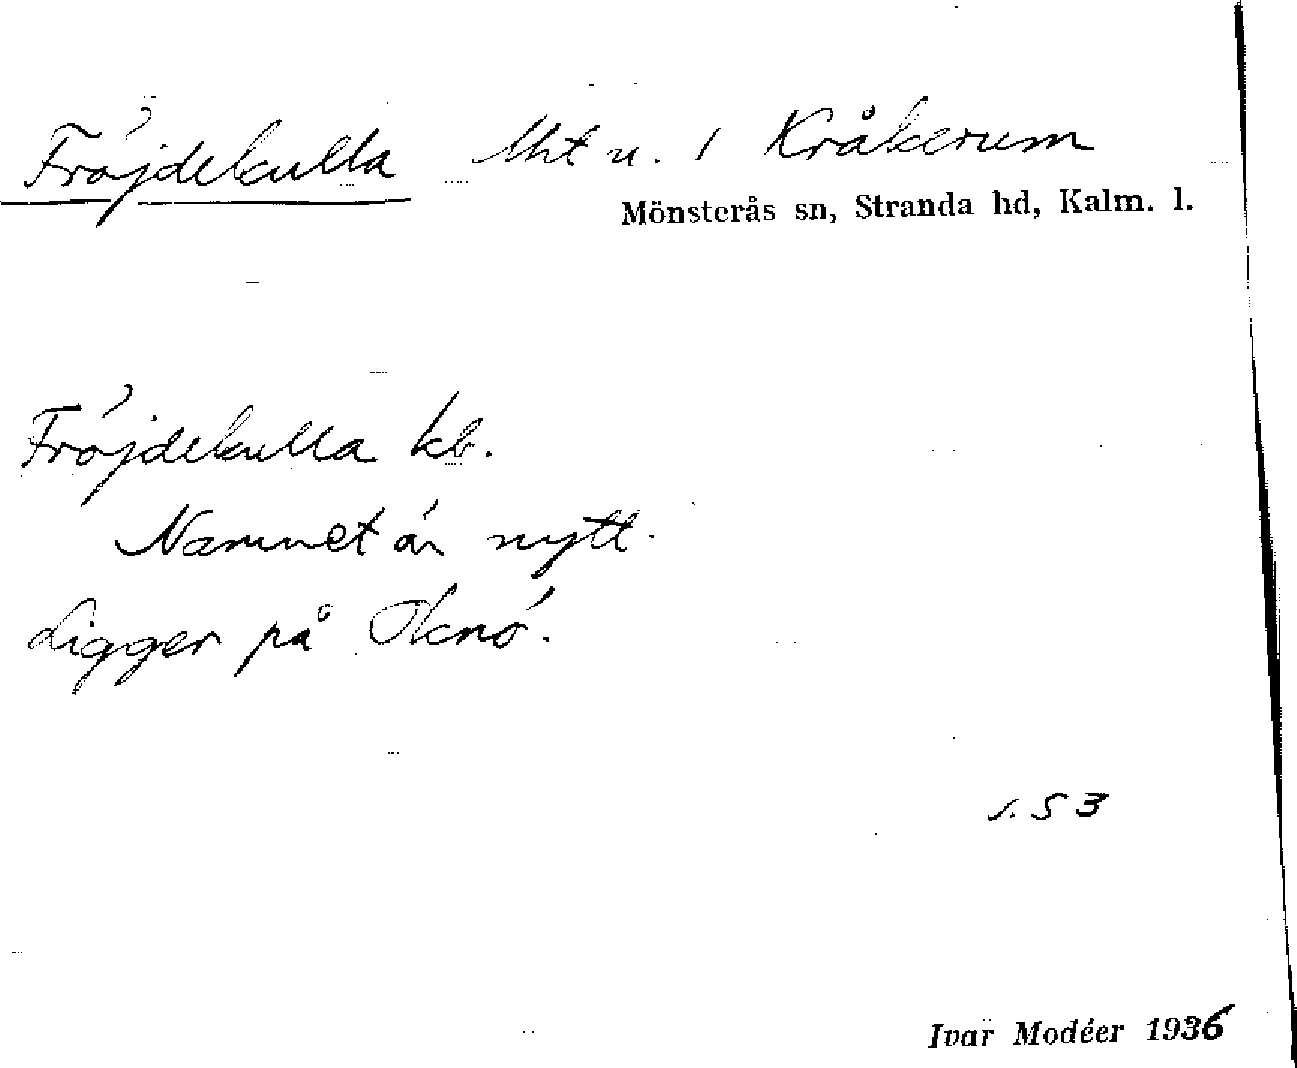 Fröjdekulla lht u. 1 Kråkerum
Mönsterås sn, Stranda hd, Kalm. l.
Fröjdekulla kb.
Namnet är nytt.
Ligger på Oknö.
s. 53
Ivar Modéer 1936